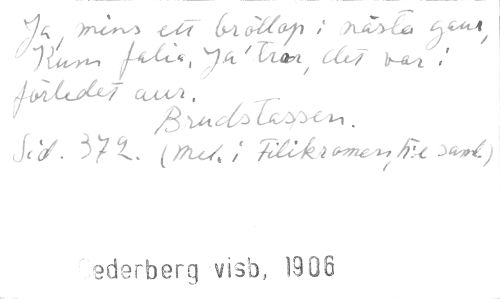 Ja, mins ett bröllop i nästa gaur,
Kum falia. Ja' tror, det var i
förledet aur.
Brudstassen.
Sid. 372. (Med. i Filikromen, h:e saml.)
Cederberg visb, 1906